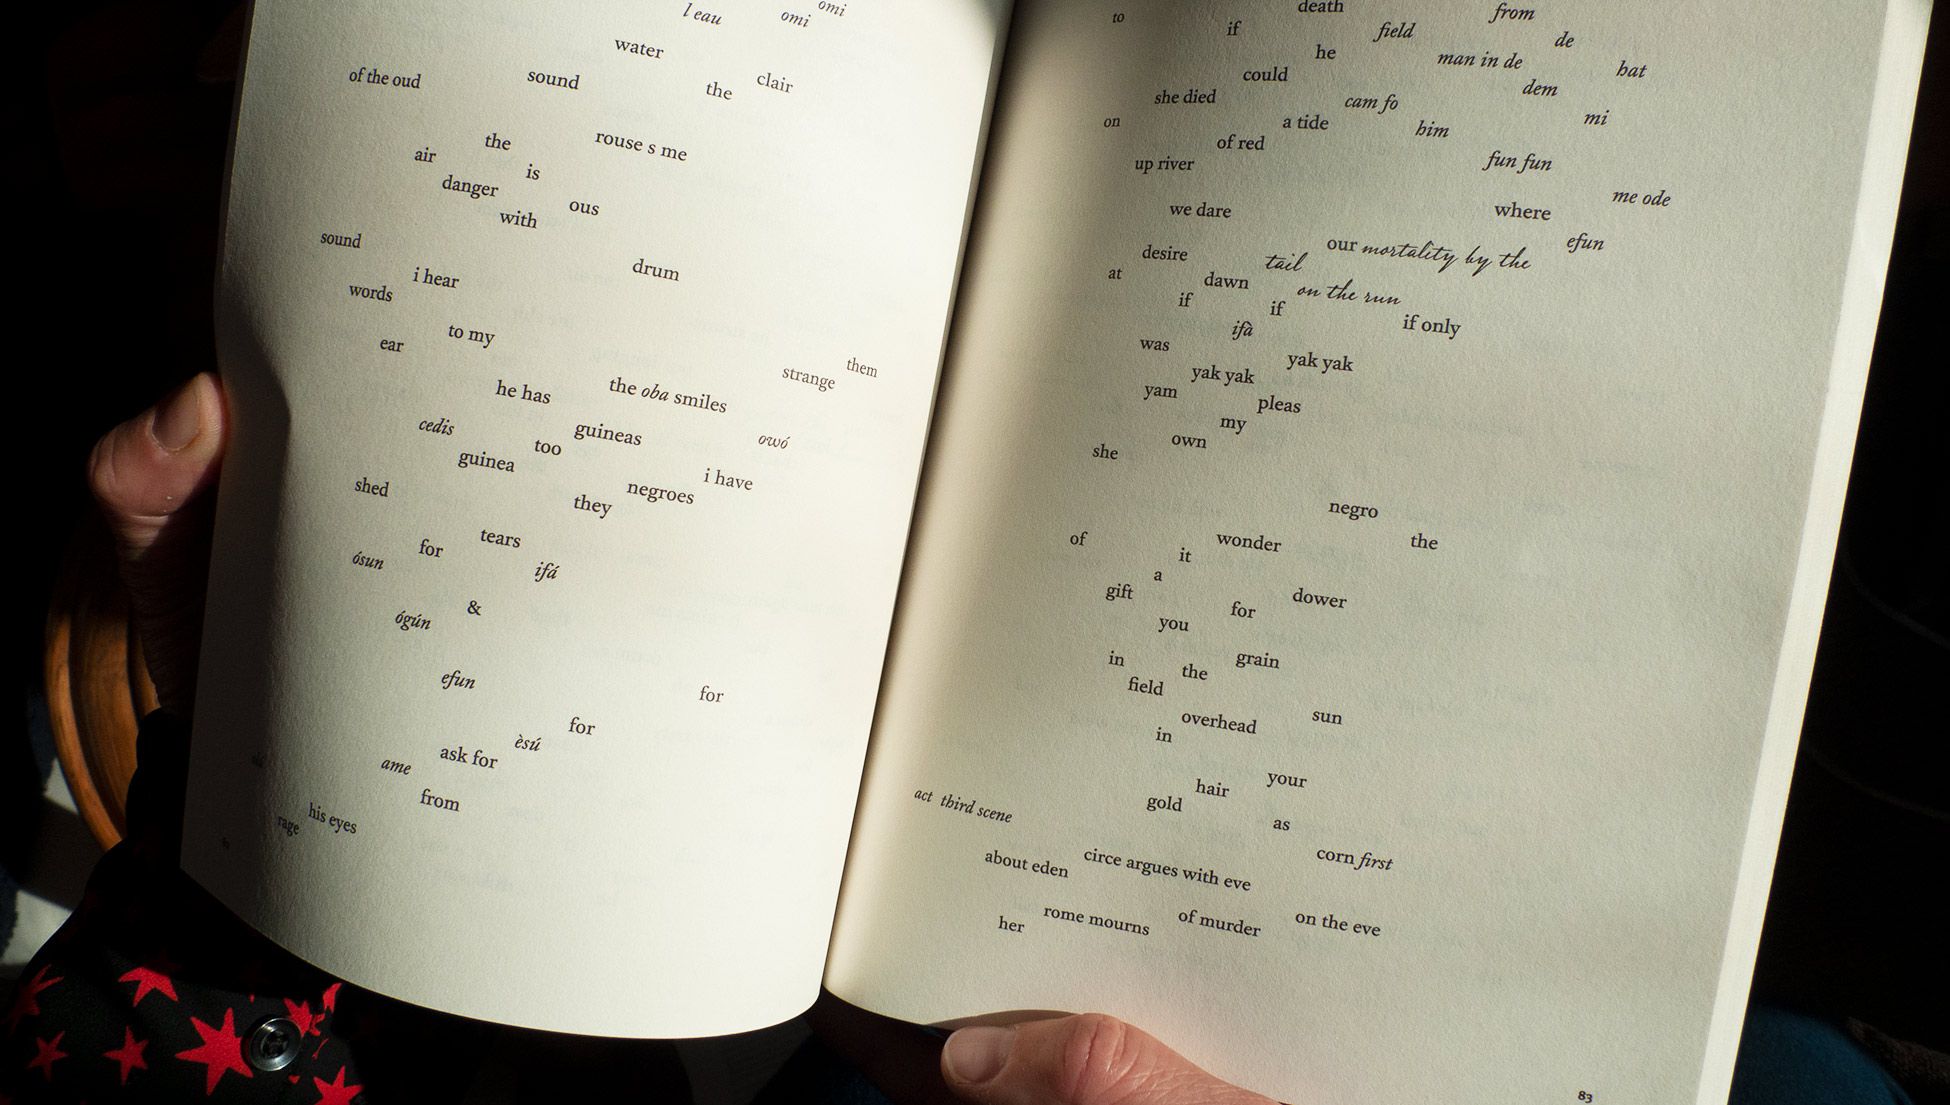 omi
l eau omi
water clair
sound the
of the oud
rouse s me
the
air is
danger ous
with
drum
sound
i hear
words
to my them
ear strange
the oba smiles
he has owó
guineas
cedis too i have
guinea negroes
they
shed
tears
for ifá
ósun
&
ógún
for
efun
for
èsú
ask for
ame
from
his eyes
rage
death from
to field de
if man in de hat
he dem
could cam fo mi
she died him
a tide fun fun
on of red me ode
up river where
efun
we dare our mortality by the
tail
desire on the run
dawn if only
at if
if
ifà
was yak yak
yak yak
yam pleas
my
own
she
negro
the
wonder
of it
a dower
gift for
you
grain
in the
field
sun
overhead
in
your
hair
gold as
corn first
act third scene
circe argues with eve
about eden
on the eve
of murder
rome mourns
her
83